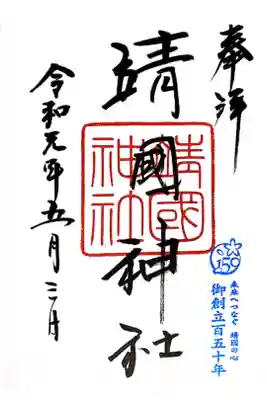 奉拝
靖國神社
靖國神社
150
未来へつなぐ 靖国の心
御創立百五十年
令和元年五月三日